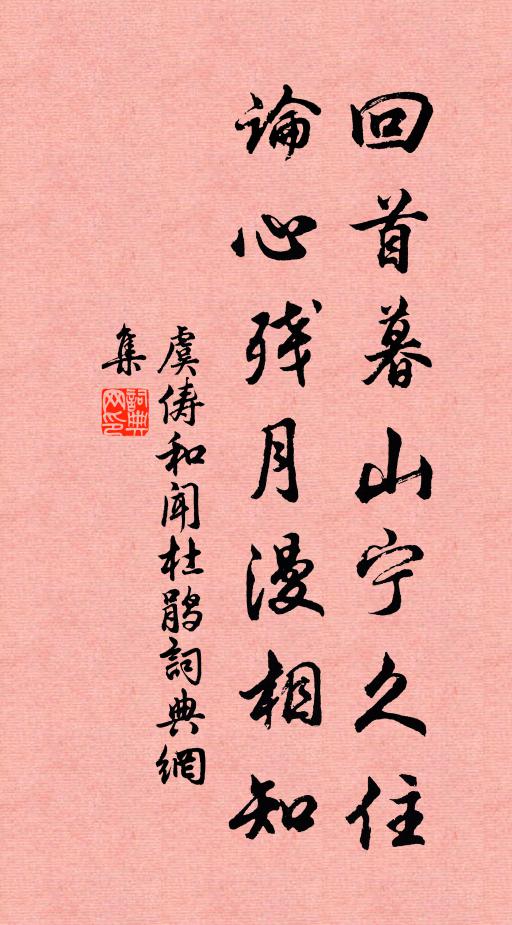 回首暮山宁久住
論心残月漫相知
虞俦和闻杜鹃詞典網
集
詞典
网印